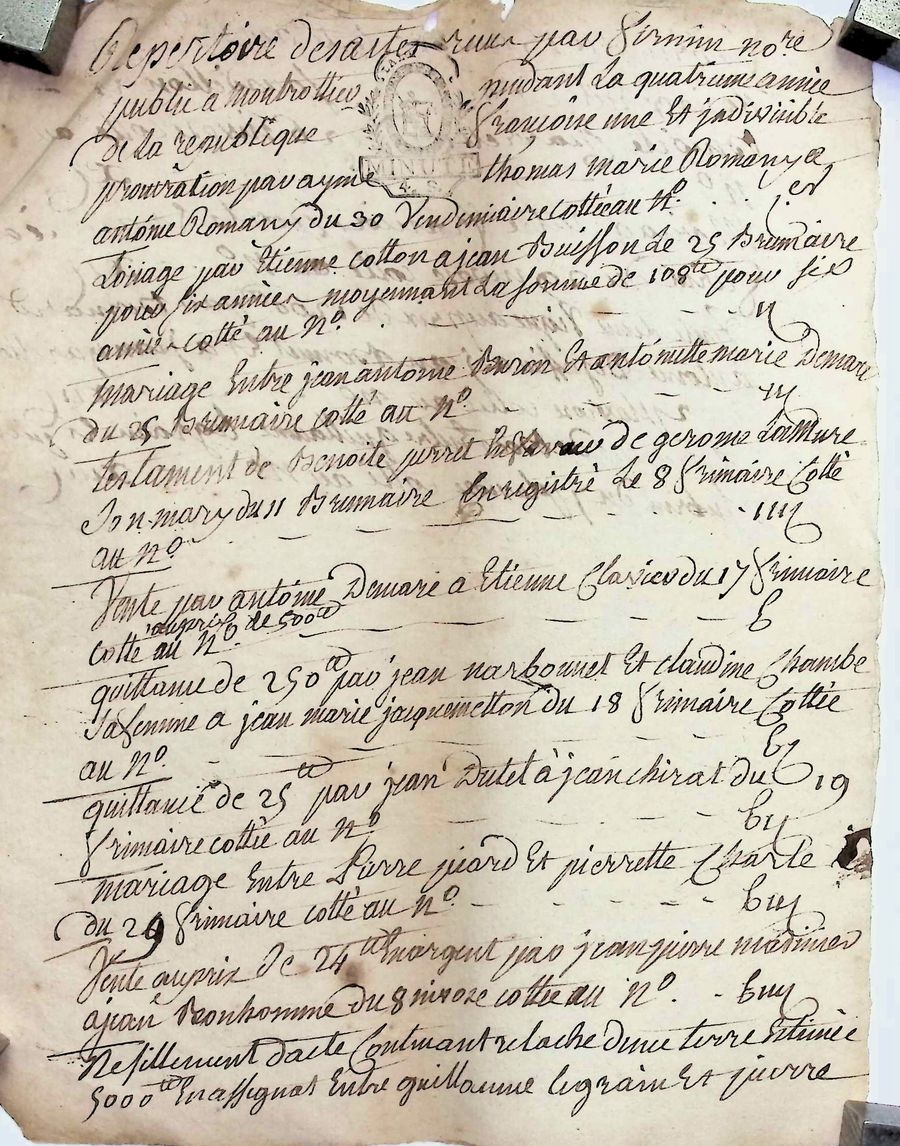 Repertoire des actes reçus par Firmin no.re
public a montrottier pendant La quatrieme année
de La republique françoise une Et jndivisible
MINUTE
procuration par aymé thomas marie Romany a
antoine Romany du 30 Vendemiaire cottée au N.o . . 1.er
Loüage par Etienne cotton a jean Buisson Le 25 Brumaire
pour six années moyennant La somme de 108tt pour six
années cotté au N.o - - - 11
mariage Entre jean antoine Buron Et antoinette marie Demare
du 25 Brumaire cotté au N.o - - - 111
testament de Benoite perret de gerome Landure
son mary du 11 Brumaire Enregistré Le 8 frimaire Cotté
au N.o - - - - 1111
Vente par antoine Demare a Etienne Clavier du 17 frimaire
au prix de 500tt
cotté au N.o - - - - b
quittance de 250tt par jean narbonnet Et claudine Chambe
sa femme a jean marie jacquemetton du 18 frimaire Cottée
au N.o - - - - b1
quittance de 25tt par jean Dutel à jean chirat du 19
frimaire cottée au N.o - - - b11
mariage Entre Pierre picard Et pierrette Charle
du 29 frimaire cotté au N.o - - - - b111
Vente au prix de 24tt En argent par jean pierre marinier
a jean Bonhomme du 8 nivose cottée au N.o . - b1111
Resillement d'acte Contenant relache d'une terre Estimée
5000tt En assignat Entre guillaume legrain Et pierre